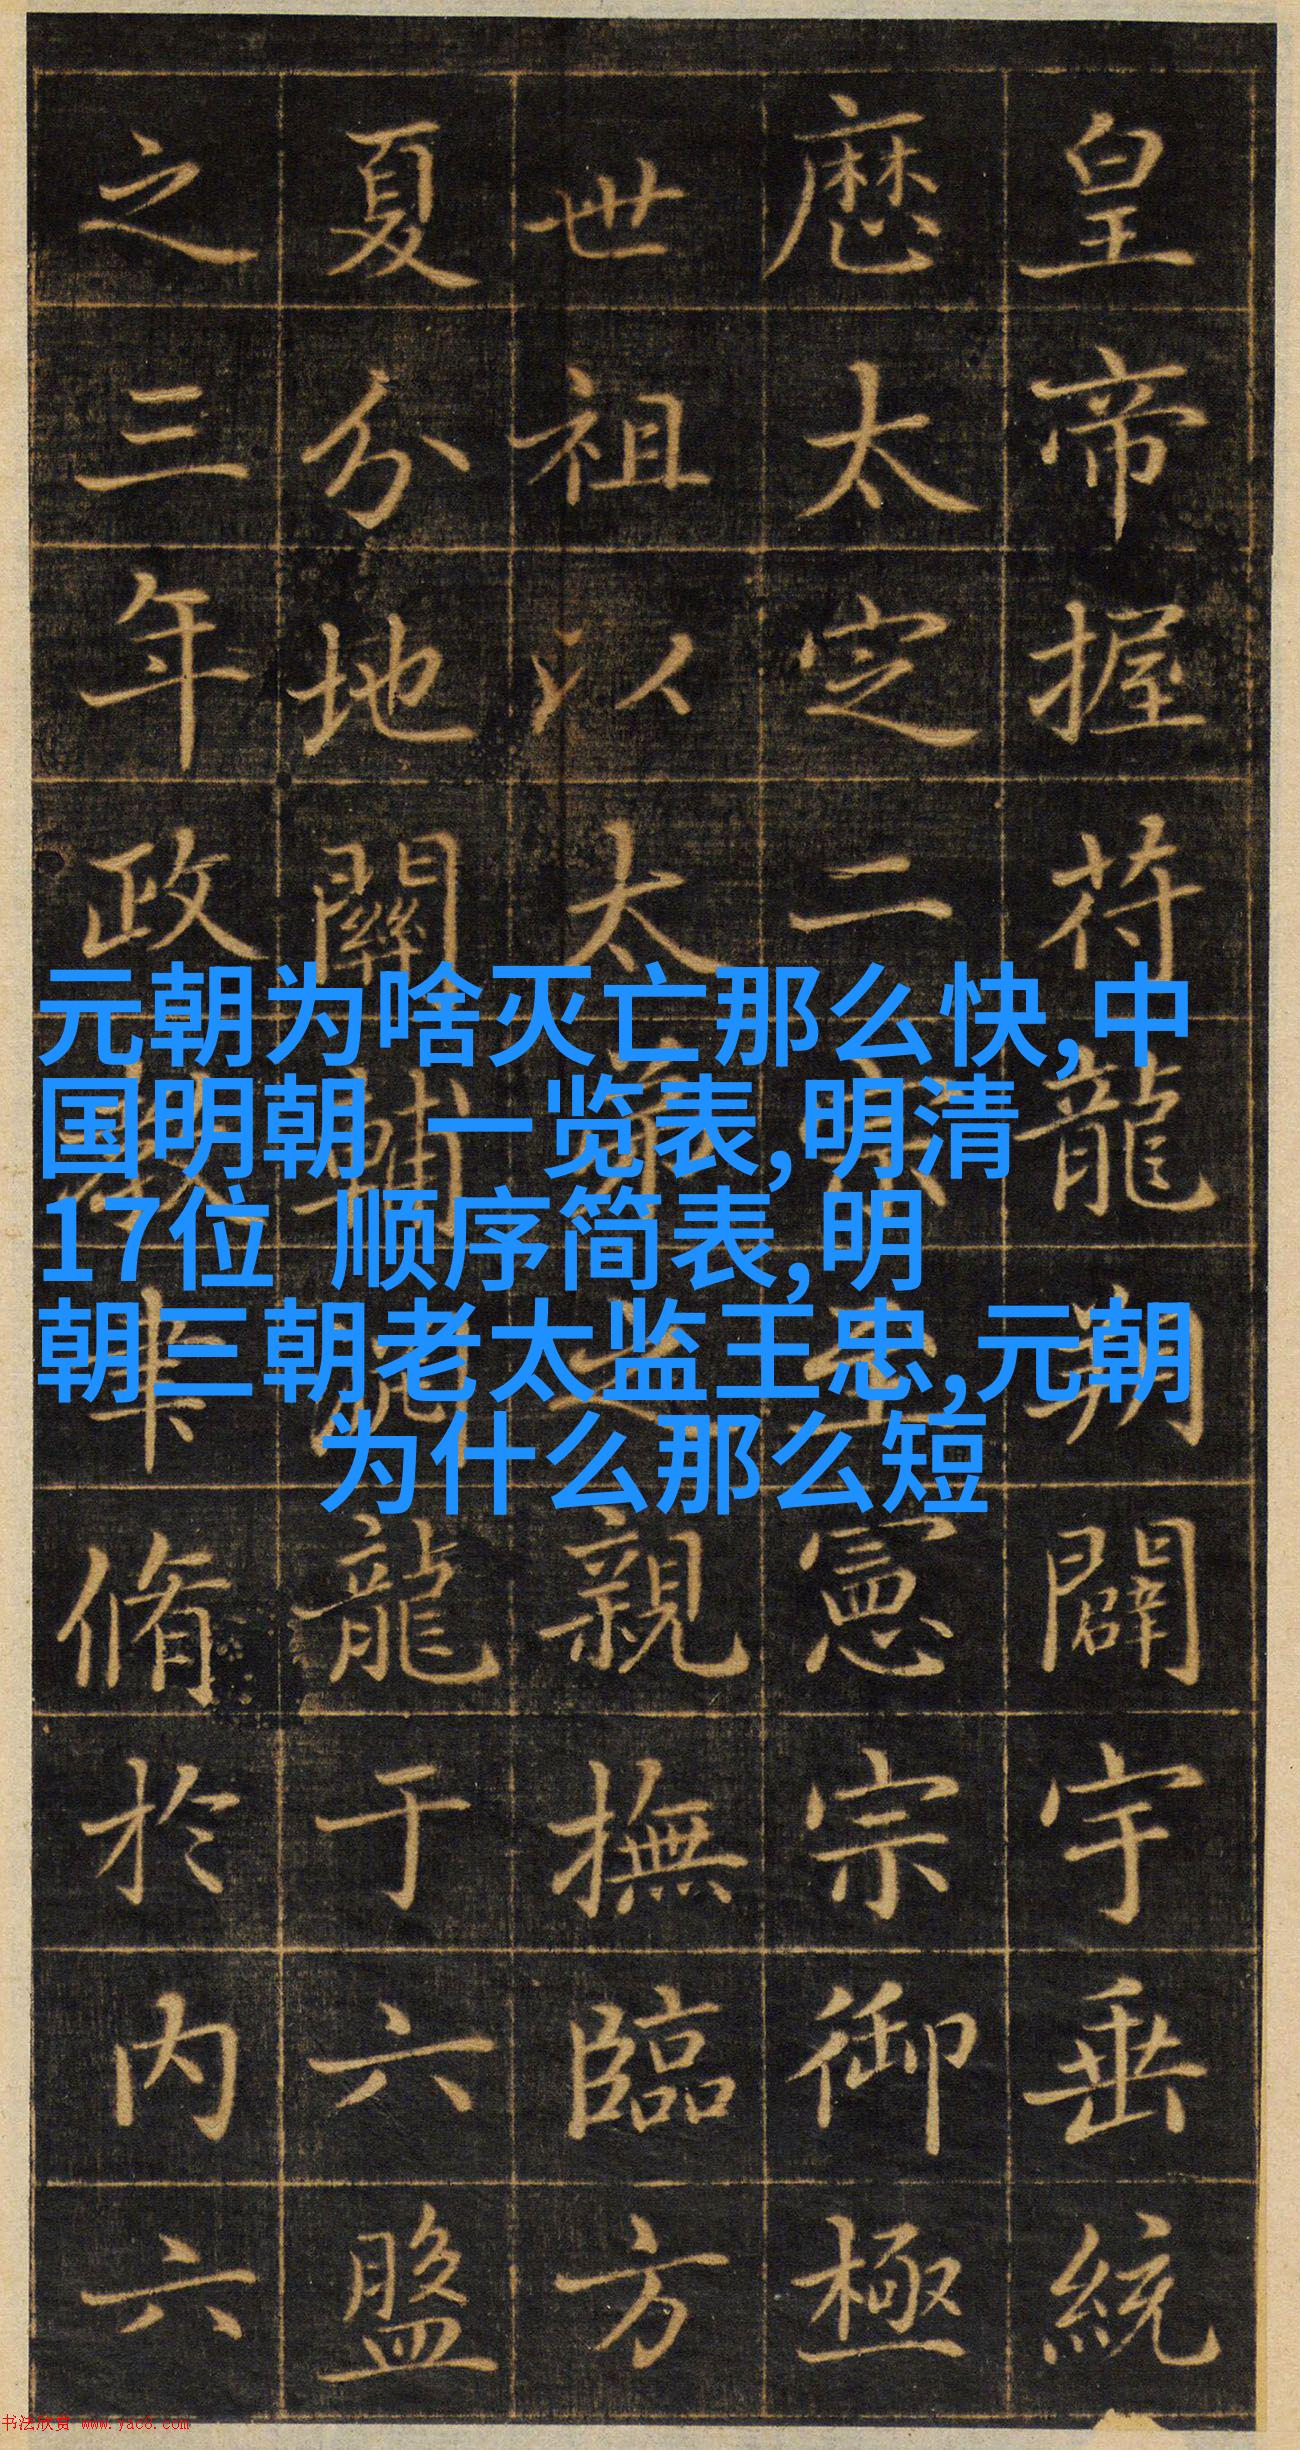 皇帝握符龍朔闢宇垂統
厯太定二宗至憲宗御極
世祖以太弟之親撫臨方
夏分地關輔龍于六盤
之三年政教聿脩於内六
元朝为啥灭亡那么快,中
国明朝 一览表,明清
17位 顺序简表,明
朝三朝老太监王忠,元朝
为什么那么短
书法欣赏 www.yac8.com